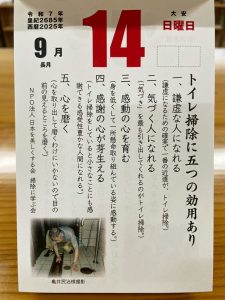 令和7年
皇紀2685年
西暦2025年
9月
長月
14
大安
日曜日
トイレ掃除に五つの効用あり
一、謙虚な人になれる
（謙虚になるための確実で一番の近道が、トイレ掃除。）
二、気づく人になれる
（「気づき」を最も引き出してくれるのがトイレ掃除。）
三、感動の心を育む
（身を低くして一所懸命取り組んでいる姿に感動する。）
四、感謝の心が芽生える
（トイレ掃除をしていると小さなことにも感
謝できる感受性豊かな人間になれる。）
五、心を磨く
（心を取り出して磨くわけにいかないので目の
前の見えるところを磨く。）
NPO法人 日本を美しくする会 掃除に学ぶ会
亀井民治様撮影